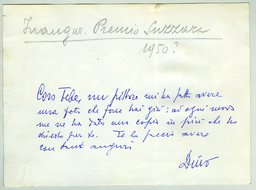 Inaugur. Premio Suzzara
1950?
Caro Fede, un pittore mi ha fatto avere
una foto che forse hai già; ad ogni modo
me ne ha dato una copia in più che ho
chiesto per te. Te la faccio avere
con tanti auguri
Dino